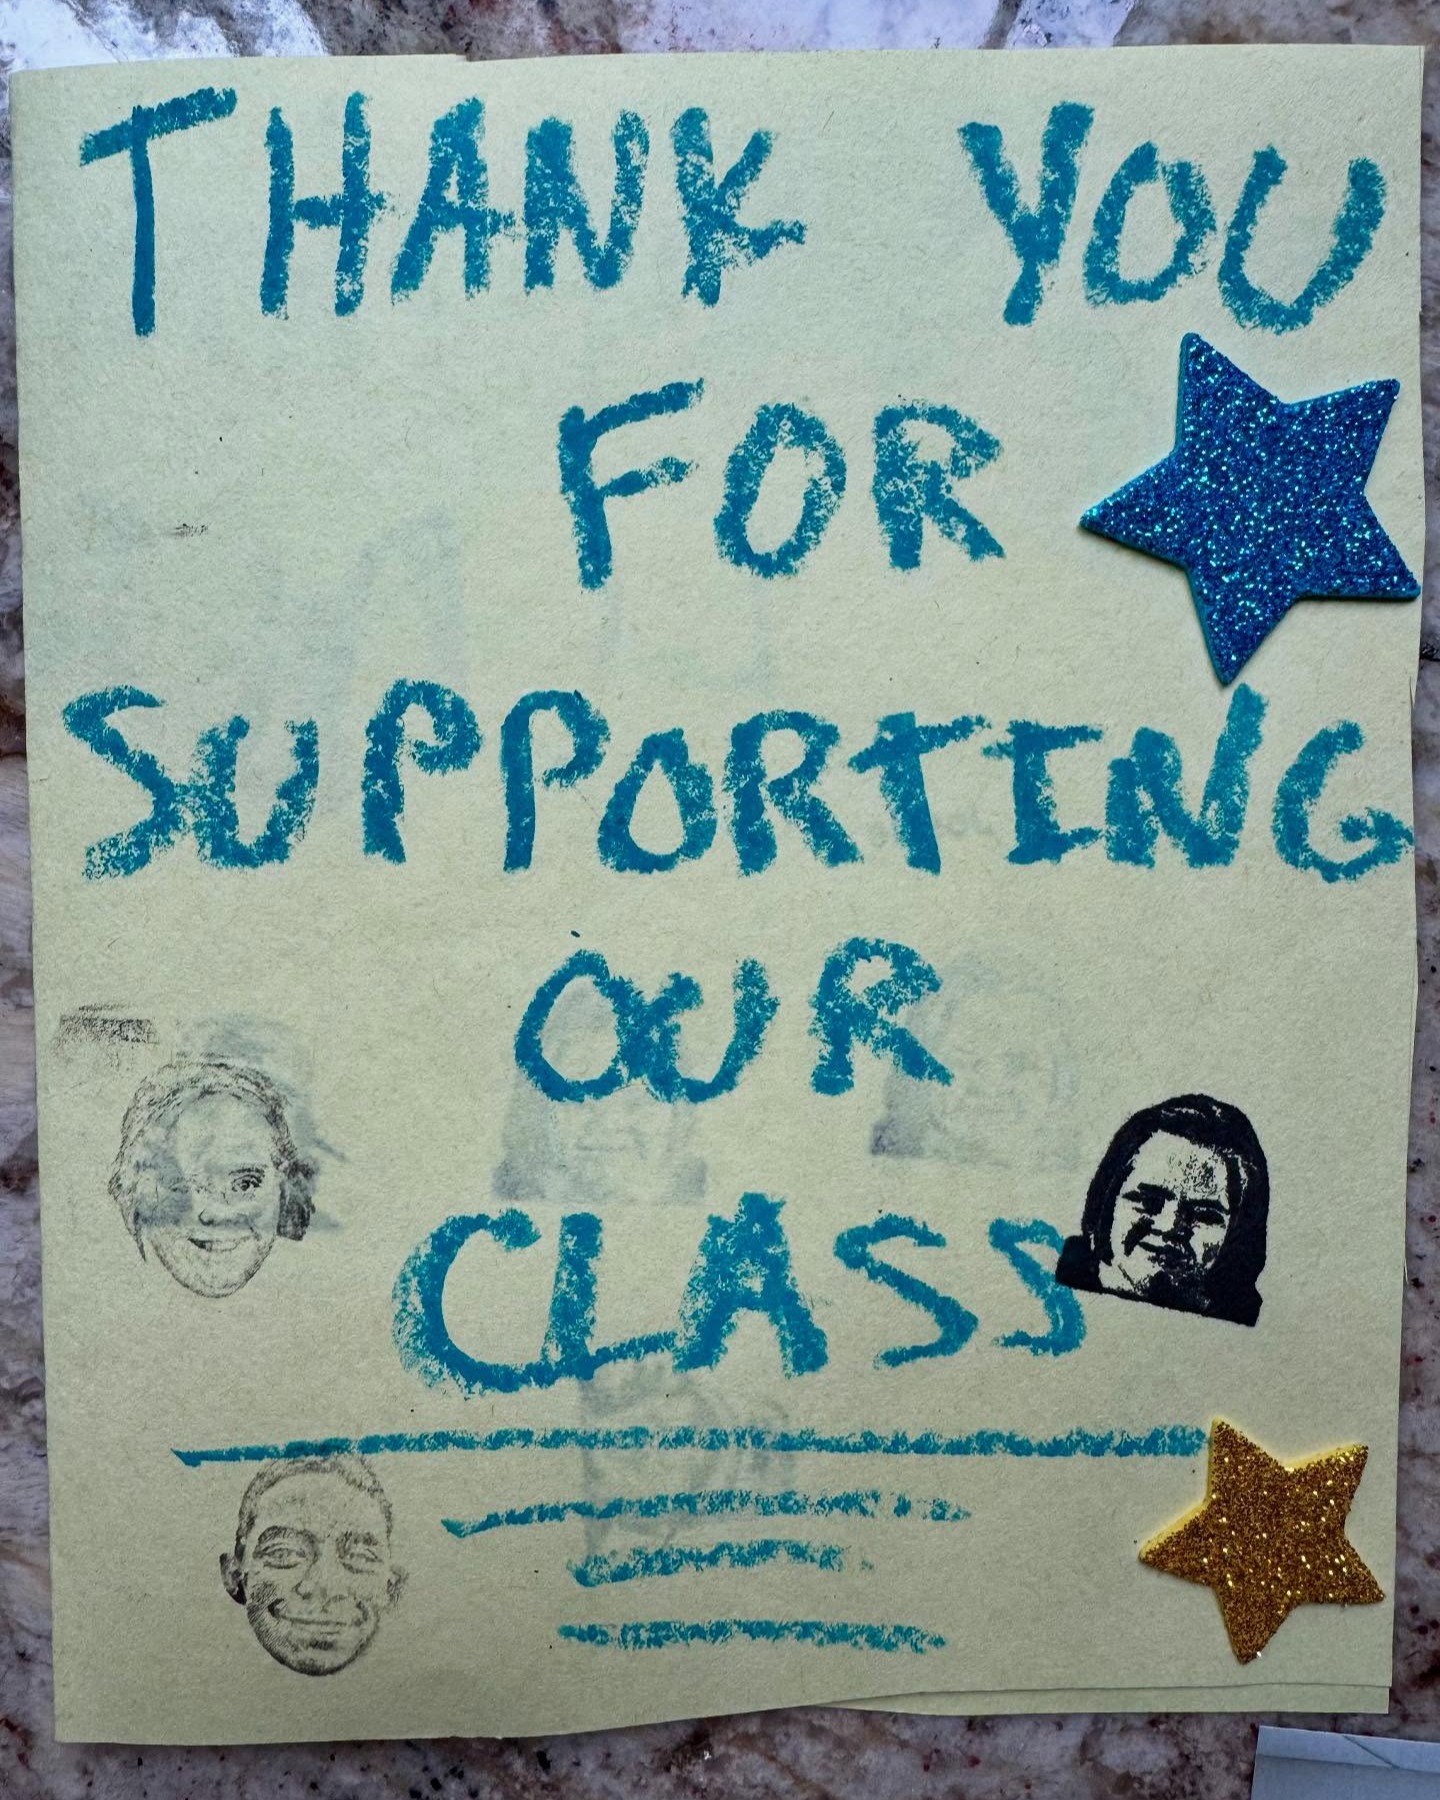 THANK YOU
FOR
SUPPORTING
OUR
CLASS